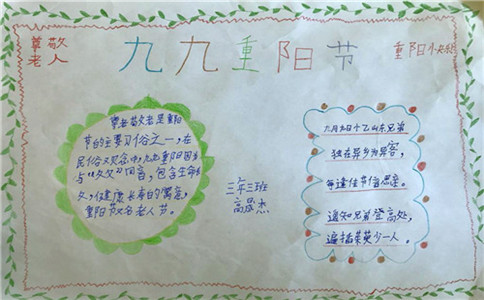 尊敬
老人
九九重阳节
重阳小
尊老敬老是重阳
节的主要习俗之一,在
民俗观念中,九九重阳因为
与“久久”同音,包含生命长
久、健康长寿的寓意,
重阳节又名老人节。
三年三班
高 杰
九月九日忆山东兄弟
独在异乡为异客,
每逢佳节倍思亲。
遥知兄弟登高处,
遍插茱萸少一人。